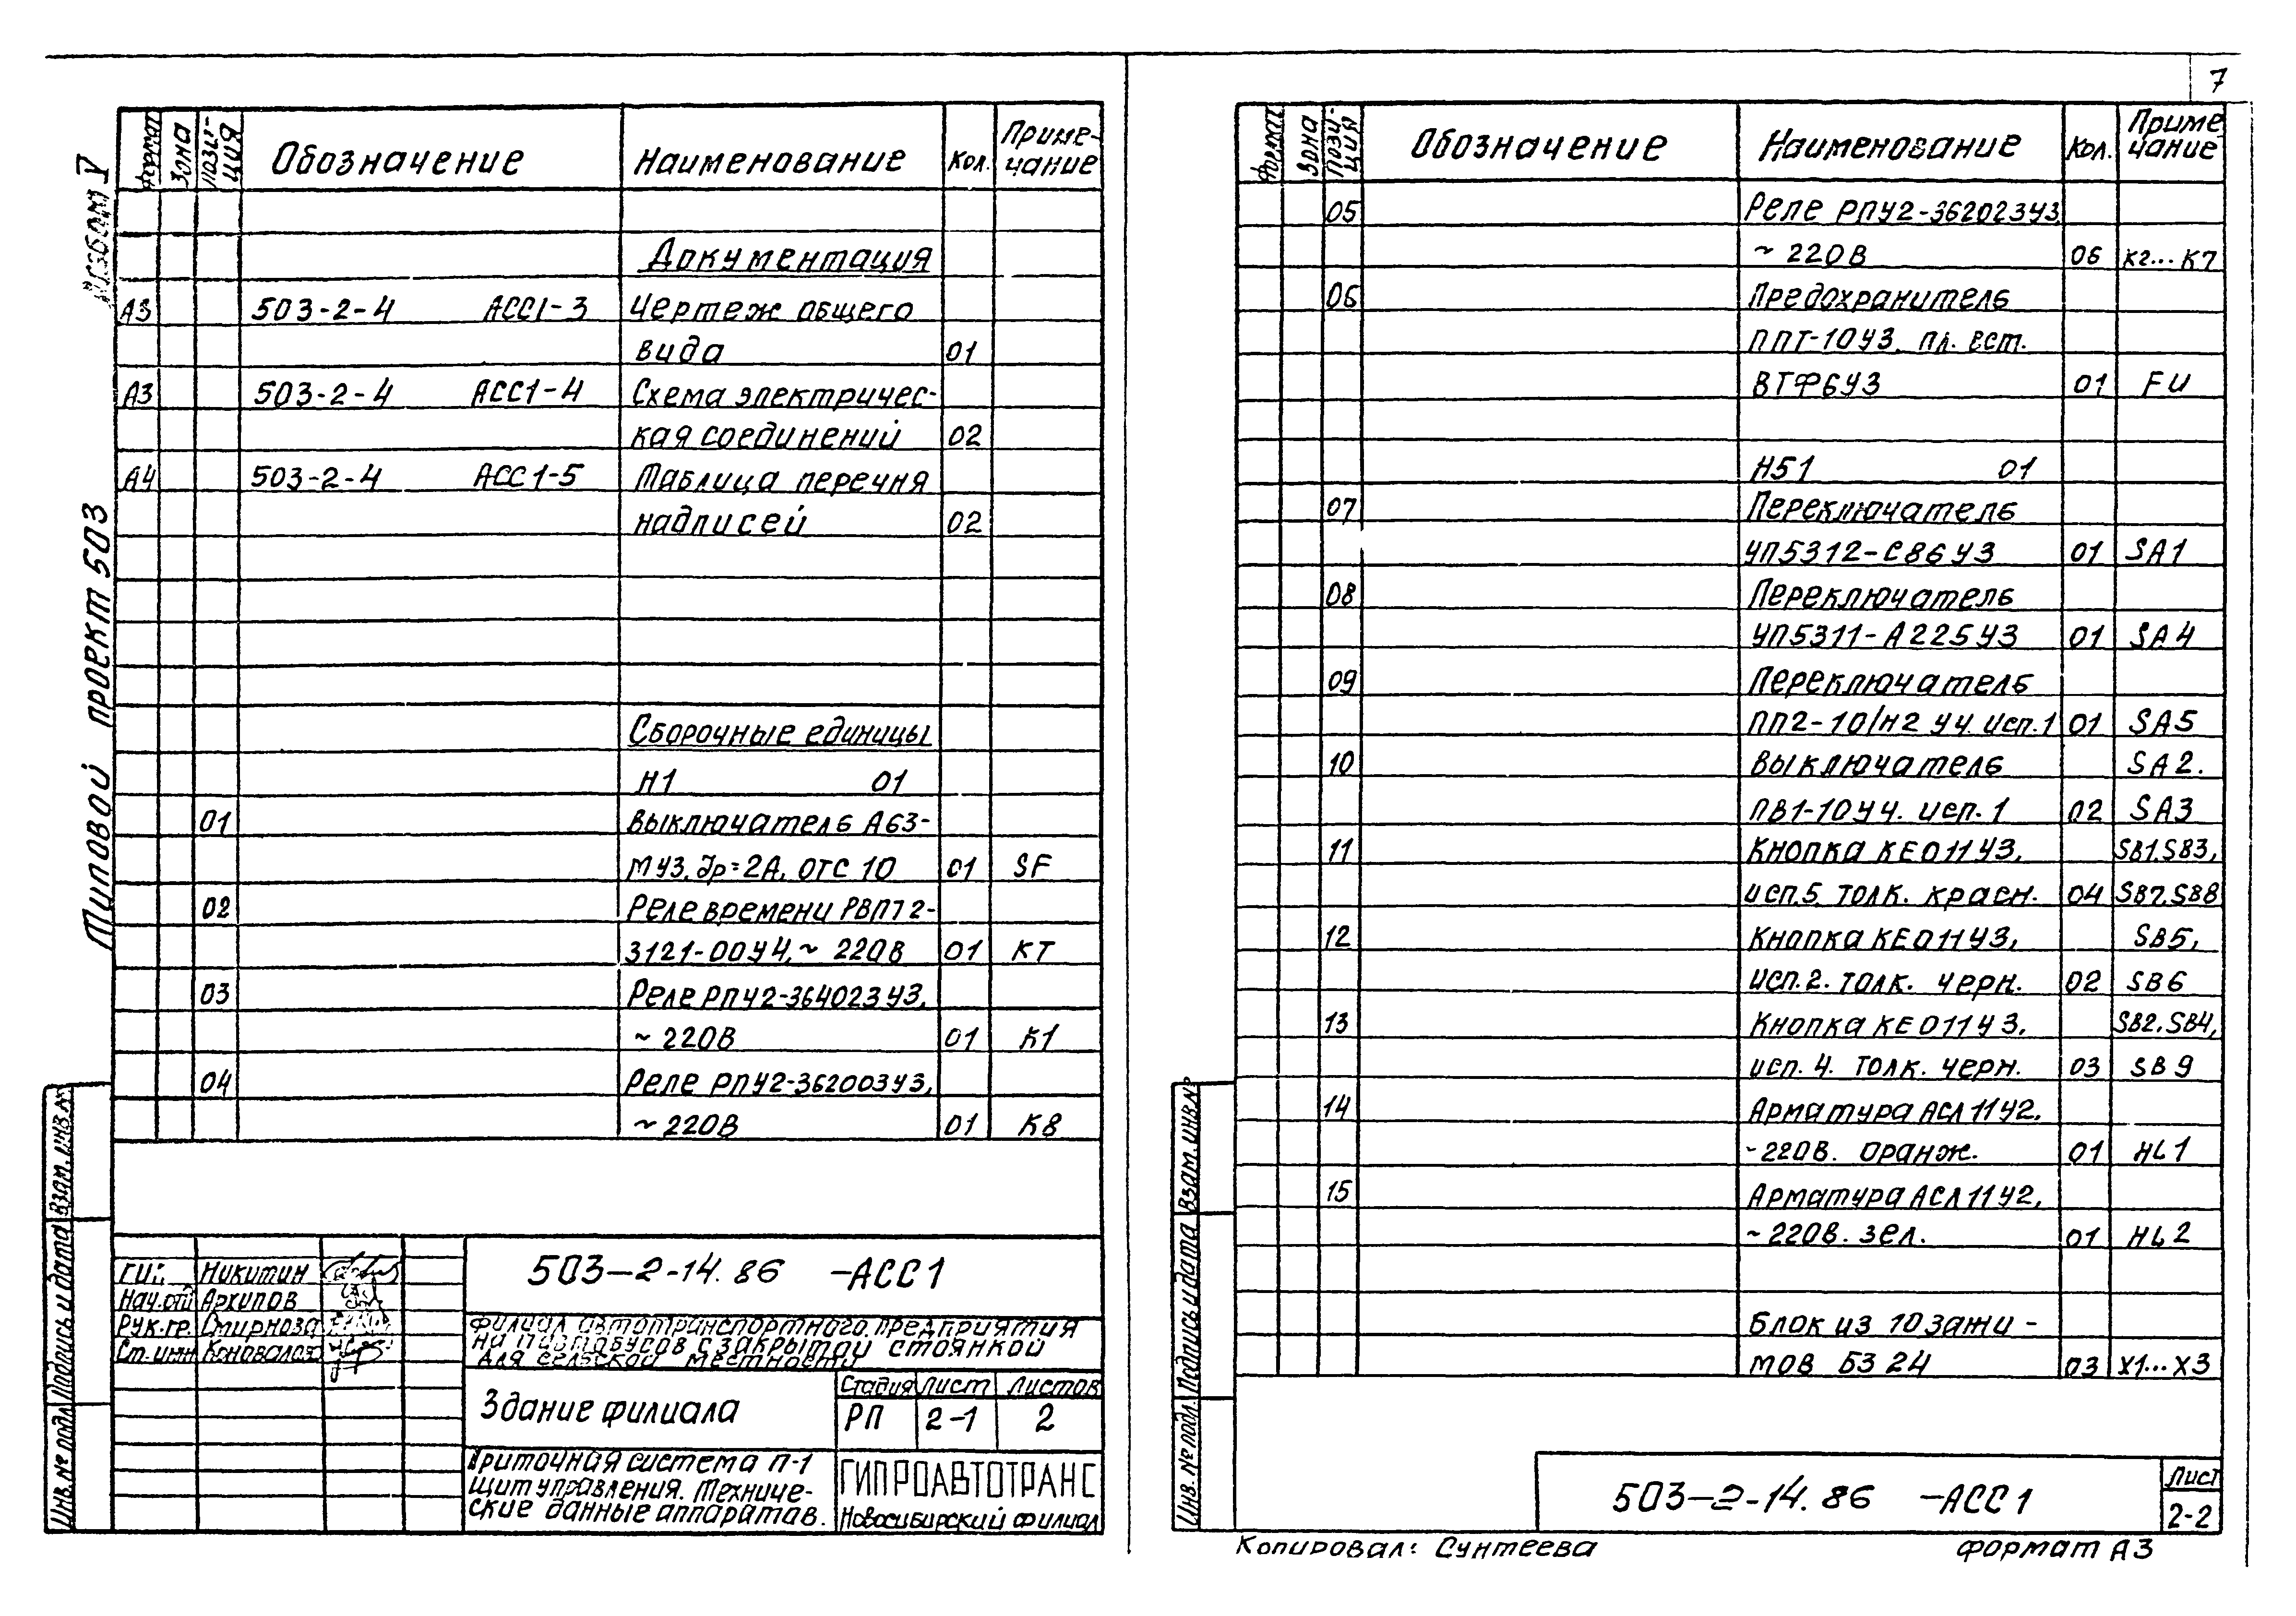 7
Альбом V
Типовой проект 503
Формат Зона Пози-ция Обозначение Наименование Кол. Приме-чание
Документация
А3 503-2-4 АСС1-3 Чертеж общего
вида 01
А3 503-2-4 АСС1-4 Схема электричес-
кая соединений 02
А4 503-2-4 АСС1-5 Таблица перечня
надписей 02
Сборочные единицы
Н1 01
01 Выключатель А63-
МУЗ, Jр=2А, ОТС 10 01 SF
02 Реле времени РВП72-
3121-00У4,~ 220В 01 КТ
03 Реле РПУ2-364023У3,
~ 220В 01 К1
04 Реле РПУ2-362003У3,
~ 220В 01 К8
Взам. инв. №
Подпись и дата
Инв. № подл.
ГИП Никитин
Нач.отд Архипов
Рук.гр. Смирнова
Ст.инж Коновалов
503-2-14.86 -АСС1
Филиал автотранспортного предприятия
на автобусов с закрытой стоянкой
для сельской местности
Здание филиала
Стадия Лист Листов
РП 2-1 2
Приточная система П-1
Щит управления. Техниче-
ские данные аппаратов.
ГИПРОАВТОТРАНС
Новосибирский филиал
Формат Зона Пози-ция Обозначение Наименование Кол. Приме чание
05 Реле РПУ2-362023У3
~ 220В 06 К2...К7
06 Предохранитель
ППТ-10У3, пл. вст.
ВТФ6У3 01 FU
Н51 01
07 Переключатель
УП5312-С86У3 01 SA1
08 Переключатель
УП5311-А225У3 01 SA4
09 Переключатель
ПП2-10/Н2 У4. исп.1 01 SA5
10 Выключатель SA2.
ПВ1-10У4. исп. 1 02 SA3
11 Кнопка КЕ011У3, SB1.SB3,
исп.5. толк. красн. 04 SB7.SB8
12 Кнопка КЕ011У3, SB5,
исп.2. толк. черн. 02 SB6
13 Кнопка КЕ011У3. SB2.SB4,
исп. 4. толк. черн. 03 SB9
14 Арматура АСЛ11У2.
~220В. Оранж. 01 HL1
15 Арматура АСЛ11У2,
~ 220В. зел. 01 HL2
Блок из 10 зажи -
мов Б3 24 03 Х1...Х3
Взам. инв. №
Подпись и дата
Инв. № подл.
503-2-14.86 -АСС1
Лист
2-2
Копировал: Сунтеева Формат А3